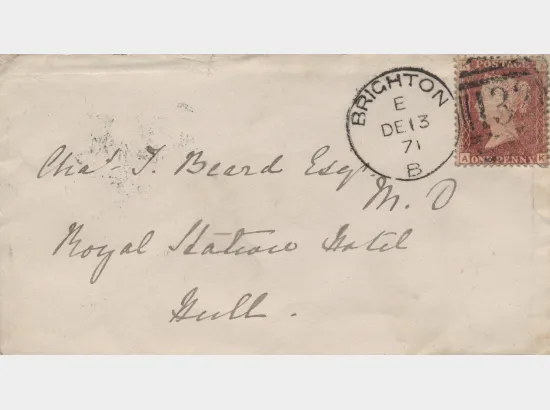 BRIGHTON
E
DE 13
71
B
POSTAGE
13
A ONE PENNY K
Chas. T. Beard Esqr.
M. D
Royal Station Hotel
Hull.